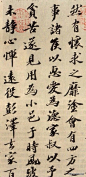 然有懷求之靡途會有四方
事諸侯以惠愛為德家叔以予
貧苦遂見用為小邑于時風波
未靜心憚遠役彭澤去家百